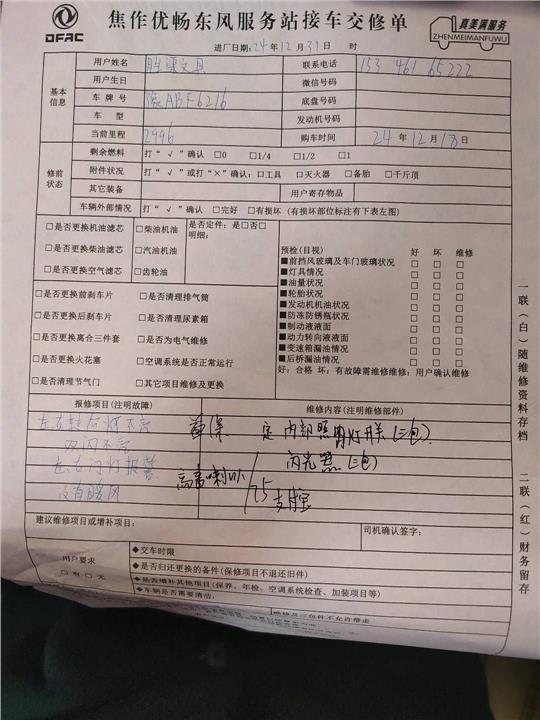 DFAC
焦作优畅东风服务站接车交修单
真美满服务
ZHENMEIMANFUWU
进厂日期:24年12月31日 时
基本信息
用户姓名
联系电话 153 461 65222
用户生日
微信号码
车牌号 豫ABF6216
底盘号码
车型
发动机号码
当前里程 2996
购车时间 24年12月18日
修前状态
剩余燃料 打“√”确认 □0 □1/4 □1/2 □1
附件状况 打“√”或打“×”确认:□工具 □灭火器 □备胎 □千斤顶
其它装备
用户寄存物品
车辆外部情况 打“√”确认 □完好 □有损坏 (有损坏部位标注有下表左图)
□是否更换机油滤芯 □柴油机油 是否定件:是□否□
明细:
□是否更换柴油滤芯 □汽油机油
□是否更换空气滤芯 □齿轮油
预检(目视) 好 坏 维修
■前挡风玻璃及车门玻璃状况 □ □ □
■灯具情况 □ □ □
■油量状况 □ □ □
■轮胎状况 □ □ □
■发动机机油状况 □ □ □
■防冻防锈瓶状况 □ □ □
■制动液液面 □ □ □
■动力转向液液面 □ □ □
■变速箱漏油情况 □ □ □
■后桥漏油情况 □ □ □
好:合格 坏:有故障需维修维修:用户确认维修
□是否更换前刹车片 □是否清理排气筒
□是否更换后刹车片 □是否清理尿素箱
□是否更换离合三件套 □是否为电气维修
□是否更换火花塞 □空调系统是否正常运行
□是否清理节气门 □其它项目维修及更换
报修项目(注明故障)
维修内容(注明维修部件)
双闪不亮
没有暖风
首保 定 内部照明灯开关(三包).
闪光器(三包)
高音喇叭/75
建议维修项目或增补项目:
司机确认签字:
用户要求
□有 □无
◆交车时限
◆是否归还更换的备件(保修项目不退还旧件)
◆是否增补其他项目(保养、年检、空调系统检查、加装项目等)
◆车辆是否需要清洁:
一联(白)随维修资料存档
二联(红)财务留存